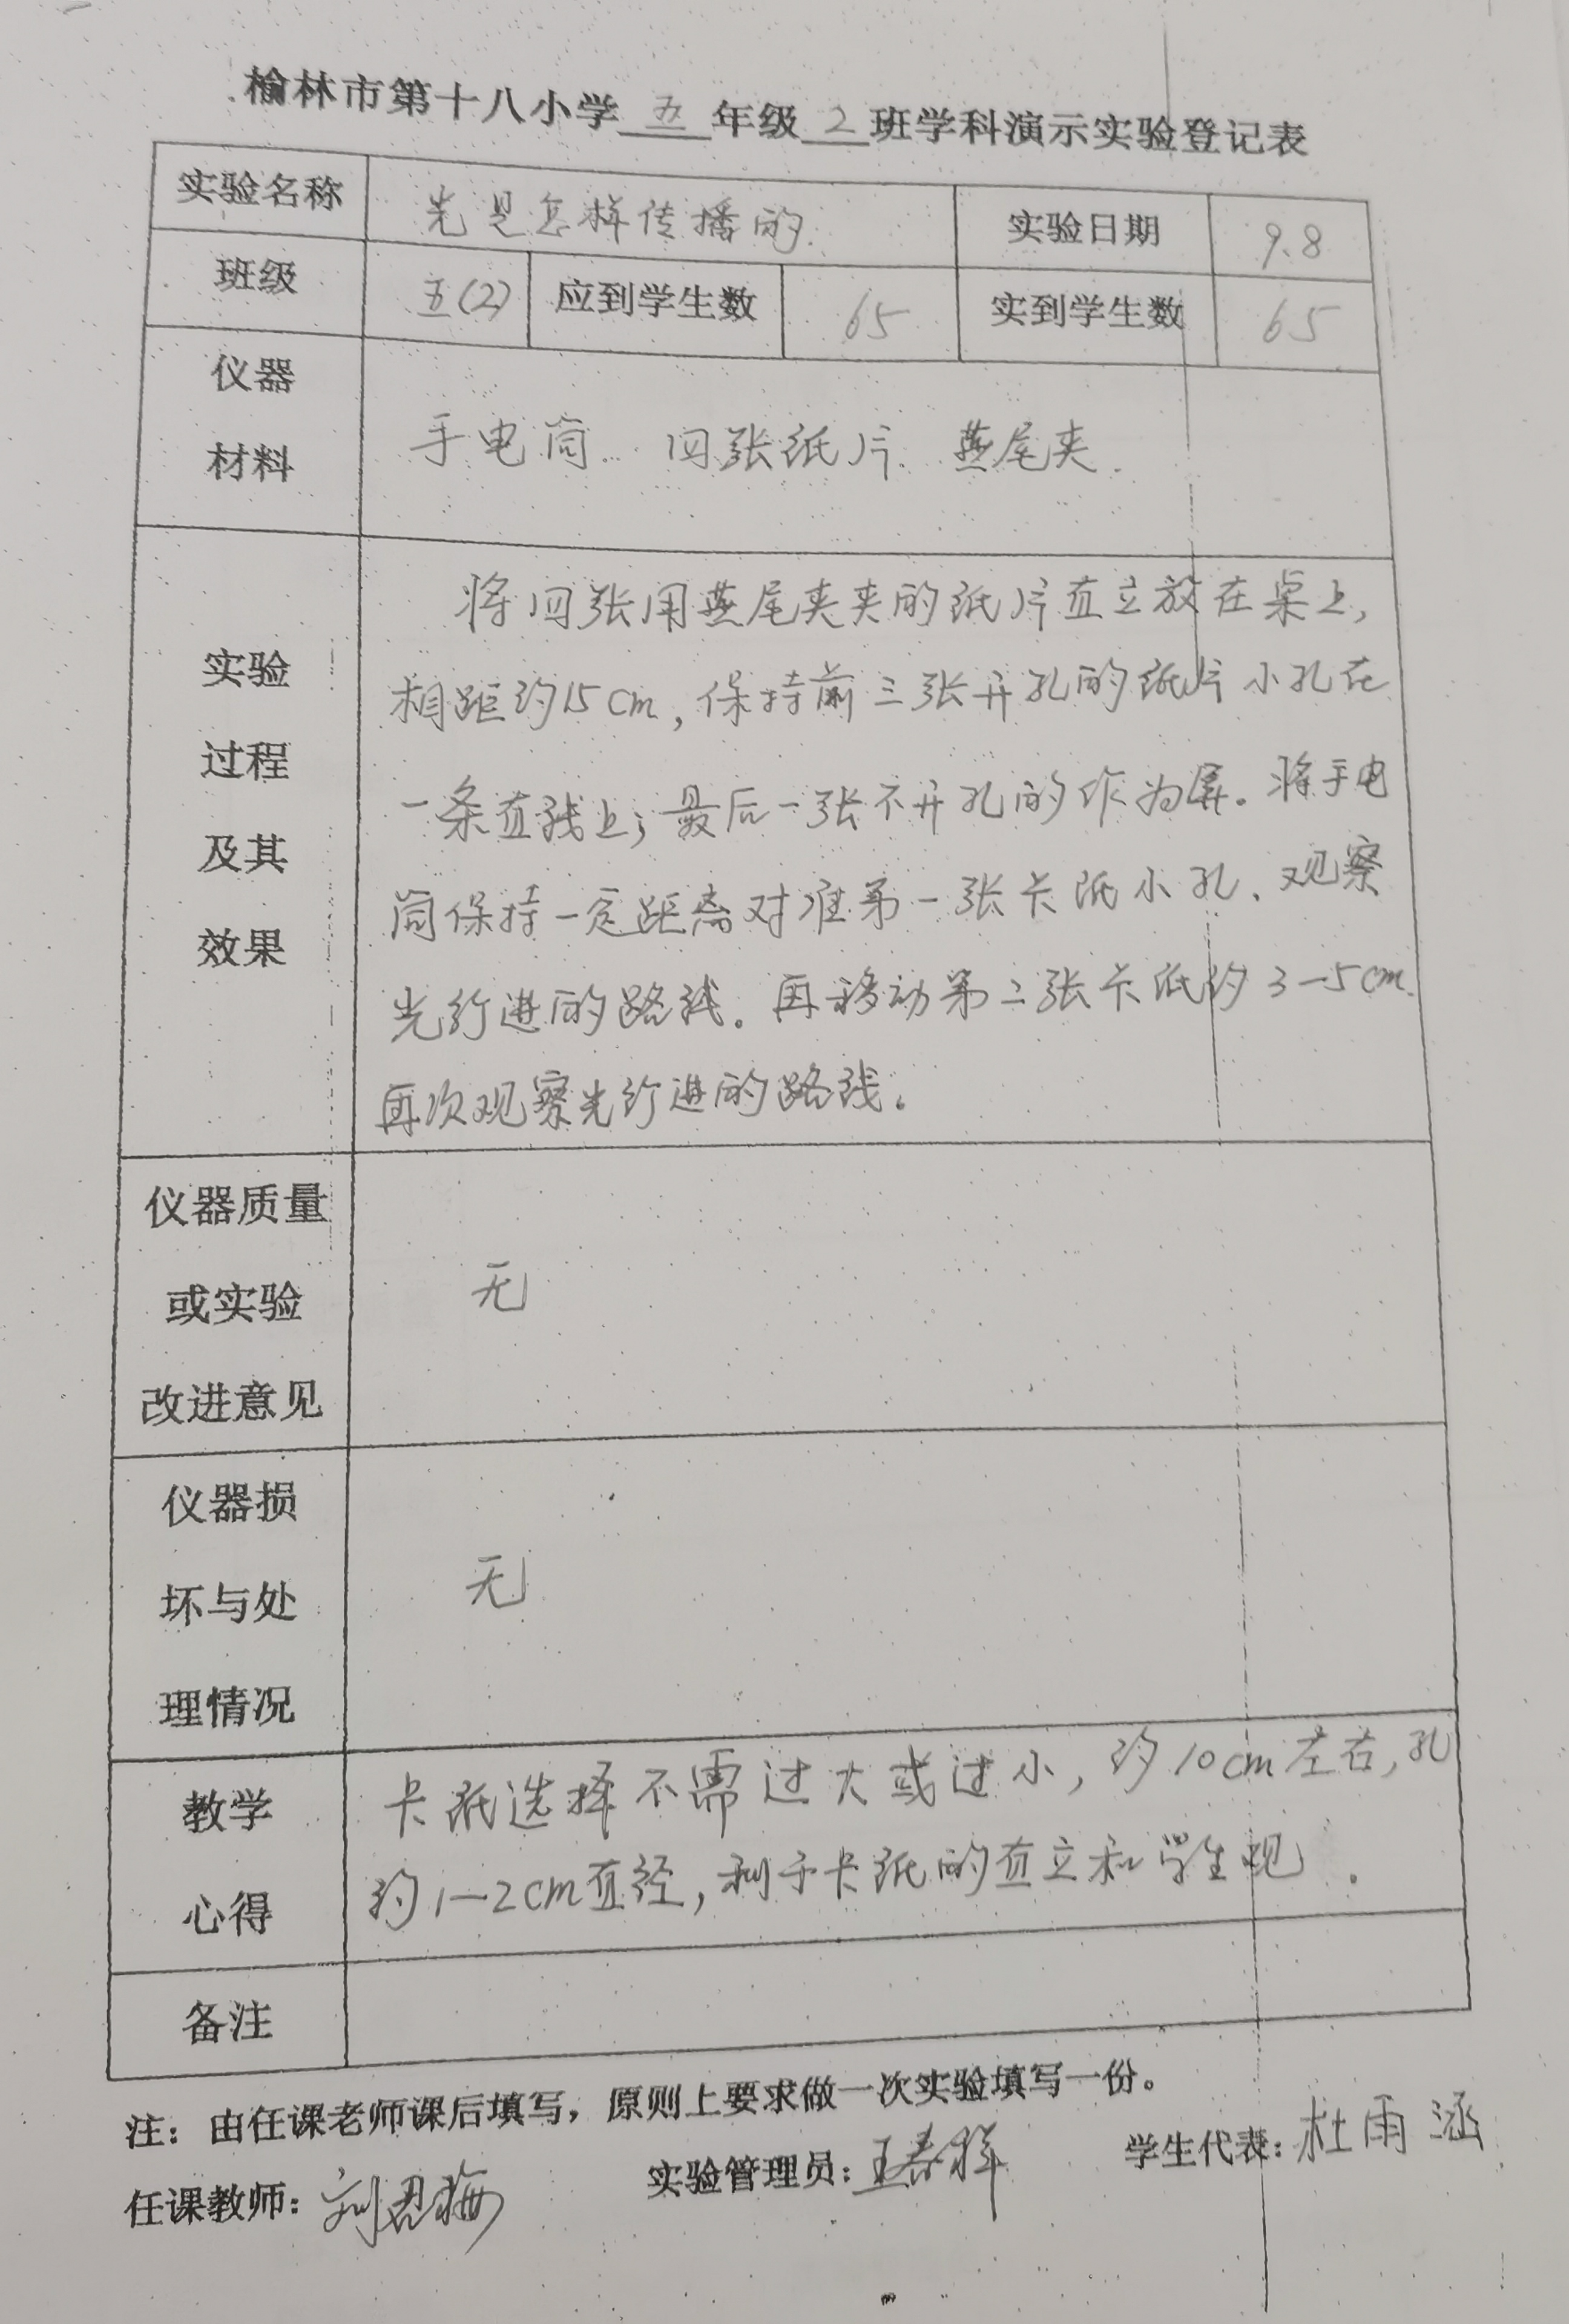 榆林市第十八小学 五 年级 2 班学科演示实验登记表
实验名称 光是怎样传播的. 实验日期 9.8
班级 五(2) 应到学生数 65 实到学生数 65
仪器
材料
手电筒. 四张纸片. 燕尾夹.
实验
过程
及其
效果
将四张用燕尾夹夹的纸片直立放在桌上,
相距约15cm,保持前三张开孔的纸片小孔在
一条直线上;最后一张不开孔的作为屏。将手电
筒保持一定距离对准第一张卡纸小孔.观察
光行进的路线。再移动第二张卡纸约3-5cm.
再次观察光行进的路线。
仪器质量
或实验
改进意见
无
仪器损
坏与处
理情况
无
教学
心得
卡纸选择不需过大或过小,约10cm左右,孔
约1-2cm直径,利于卡纸的直立和学生观.
备注
注：由任课老师课后填写，原则上要求做一次实验填写一份。
任课教师: 刘 梅 实验管理员: 王春祥 学生代表: 杜雨涵